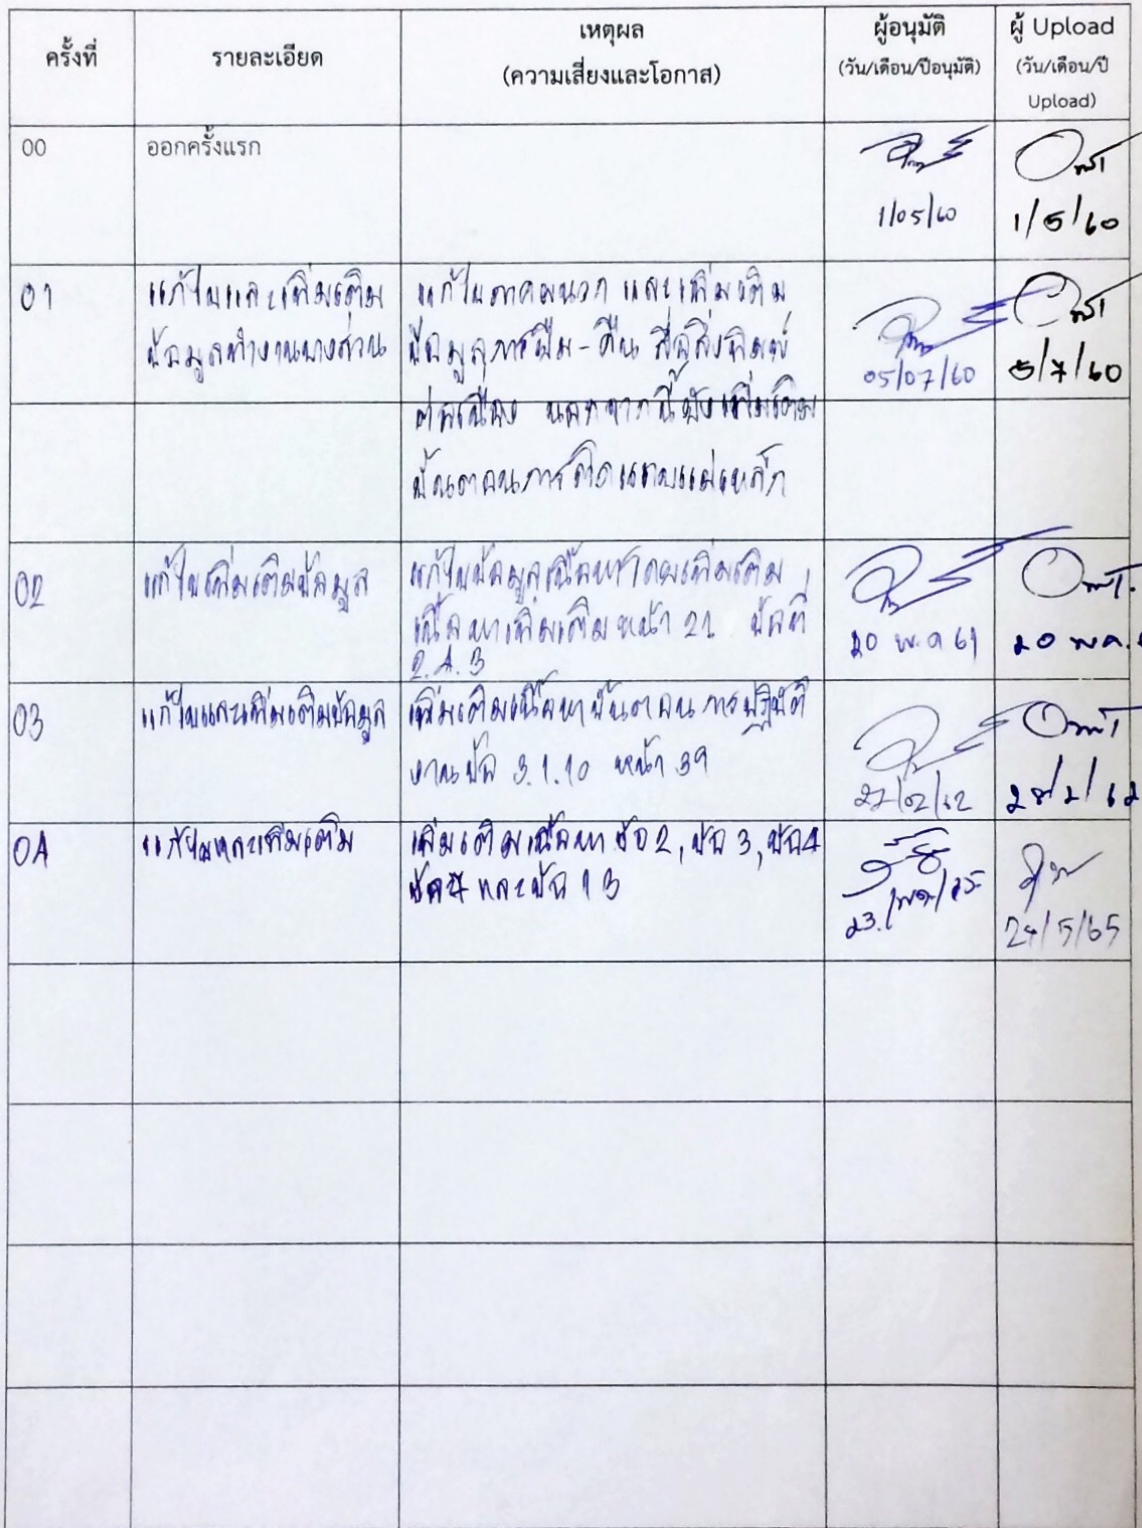 ครั้งที่
รายละเอียด
เหตุผล
(ความเสี่ยงและโอกาส)
ผู้อนุมัติ
(วัน/เดือน/ปีอนุมัติ)
ผู้ Upload
(วัน/เดือน/ปี
Upload)
00
ออกครั้งแรก
1/05/60
1/5/60
01
แก้ไขและเพิ่มเติม
ข้อมูลทำงานบางส่วน
แก้ไขภาคผนวก และเพิ่มเติม
ข้อมูลการยืม-คืน สื่อสิ่งพิมพ์
ต่อเนื่อง นอกจากนี้ยังเพิ่มเติม
ขั้นตอนการติดแถบแม่เหล็ก
05/07/60
5/7/60
02
แก้ไขเพิ่มเติมข้อมูล
แก้ไขข้อมูลเนื้อหาโดยเพิ่มเติม
เนื้อหาเพิ่มเติม หน้า 21 ข้อที่
2.4.3
20 พ.ค 61
20 พค.
03
แก้ไขและเพิ่มเติมข้อมูล
เพิ่มเติมเนื้อหาขั้นตอนการปฏิบัติ
งานข้อ 3.1.10 หน้า 39
27/02/62
28/2/62
04
แก้ไขและเพิ่มเติม
เพิ่มเติมเนื้อหา ข้อ 2, ข้อ 3, ข้อ 4
ข้อ 7 และข้อ 13
23/พค/65
24/5/65